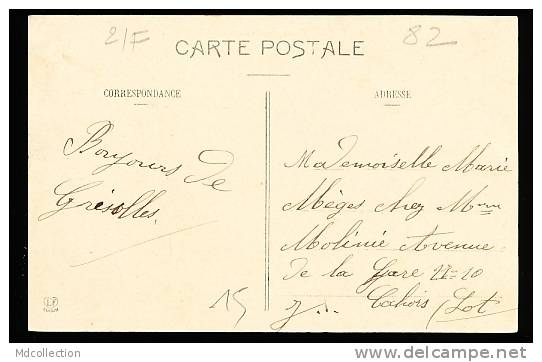 21F
82
CARTE POSTALE
CORRESPONDANCE
ADRESSE
Bonjours de
Grisolles
Mademoiselle Marie
Mèges chez Mme
Molinié Avenue
de la Gare
Cahors (Lot)
15
LF
©Mdcollection
http://www.delcampe.net